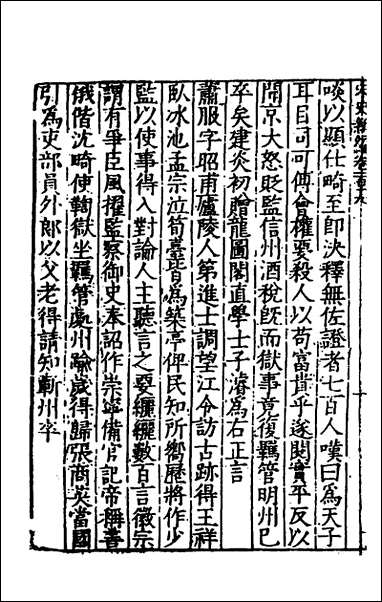 宋史新編卷一百十九
啖以顯仕畸至即決釋無佐證者七百人嘆曰爲天子
耳目可可傅會權要殺人以苟富貴乎遂閱實平反以
聞京大怒貶監信州酒稅旣而獄事竟復羈管明州巳
卒矣建炎初贈龍圖閣直學士子濬爲右正言
蕭服字昭甫廬陵人第進士調望江令訪古跡得王祥
臥冰池孟宗泣筍臺皆爲築亭俾民知所嚮歷將作少
監以使事得入對論人主聽言之要纚纚數百言徽宗
謂有爭臣風擢監察御史奉詔作崇寧備官記帝稱善
俄偕沈畸使鞫獄坐羈管處州踰歲得歸張商英當國
引爲吏部員外郎以父老得請知蘄州卒